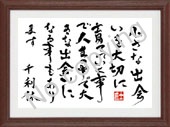 小さな出会
いを大切に
育てていく事
で人生の中で大
きな出会いに
なる事もあり
ます 千利休